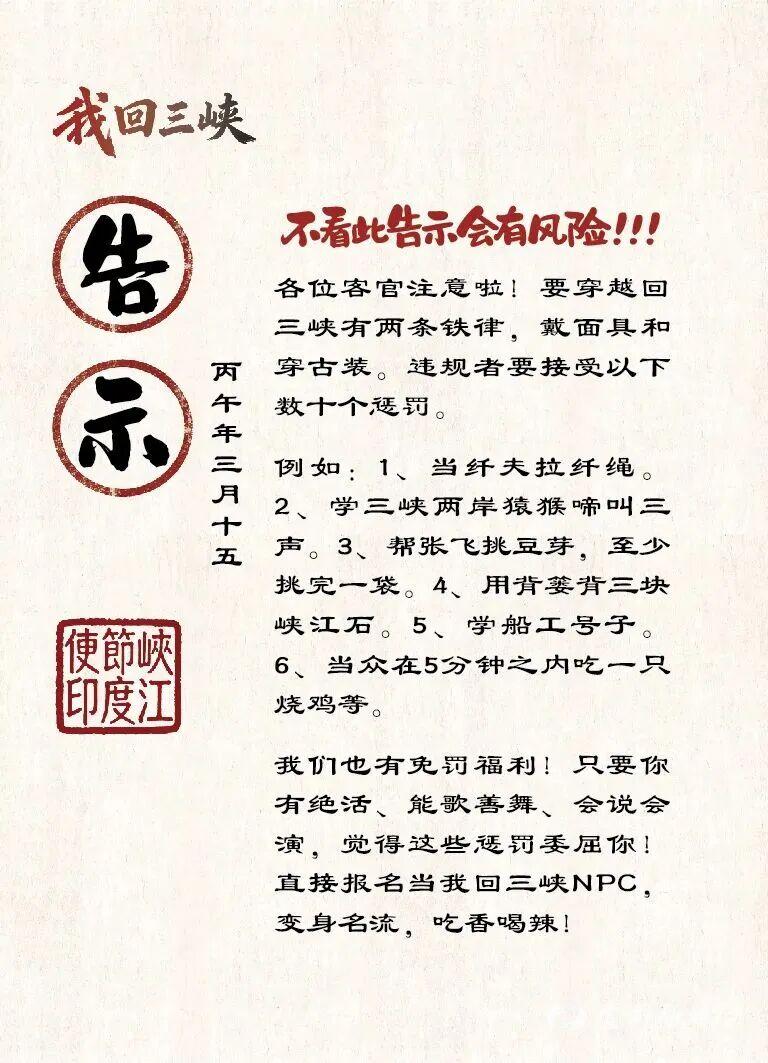 我回三峡
告
示
丙午年三月十五
峽江
節度
使印
不看此告示会有风险!!!
各位客官注意啦！要穿越回
三峡有两条铁律，戴面具和
穿古装。违规者要接受以下
数十个惩罚。
例如：1、当纤夫拉纤绳。
2、学三峡两岸猿猴啼叫三
声。3、帮张飞挑豆芽，至少
挑完一袋。4、用背篓背三块
峡江石。5、学船工号子。
6、当众在5分钟之内吃一只
烧鸡等。
我们也有免罚福利！只要你
有绝活、能歌善舞、会说会
演，觉得这些惩罚委屈你！
直接报名当我回三峡NPC，
变身名流，吃香喝辣！